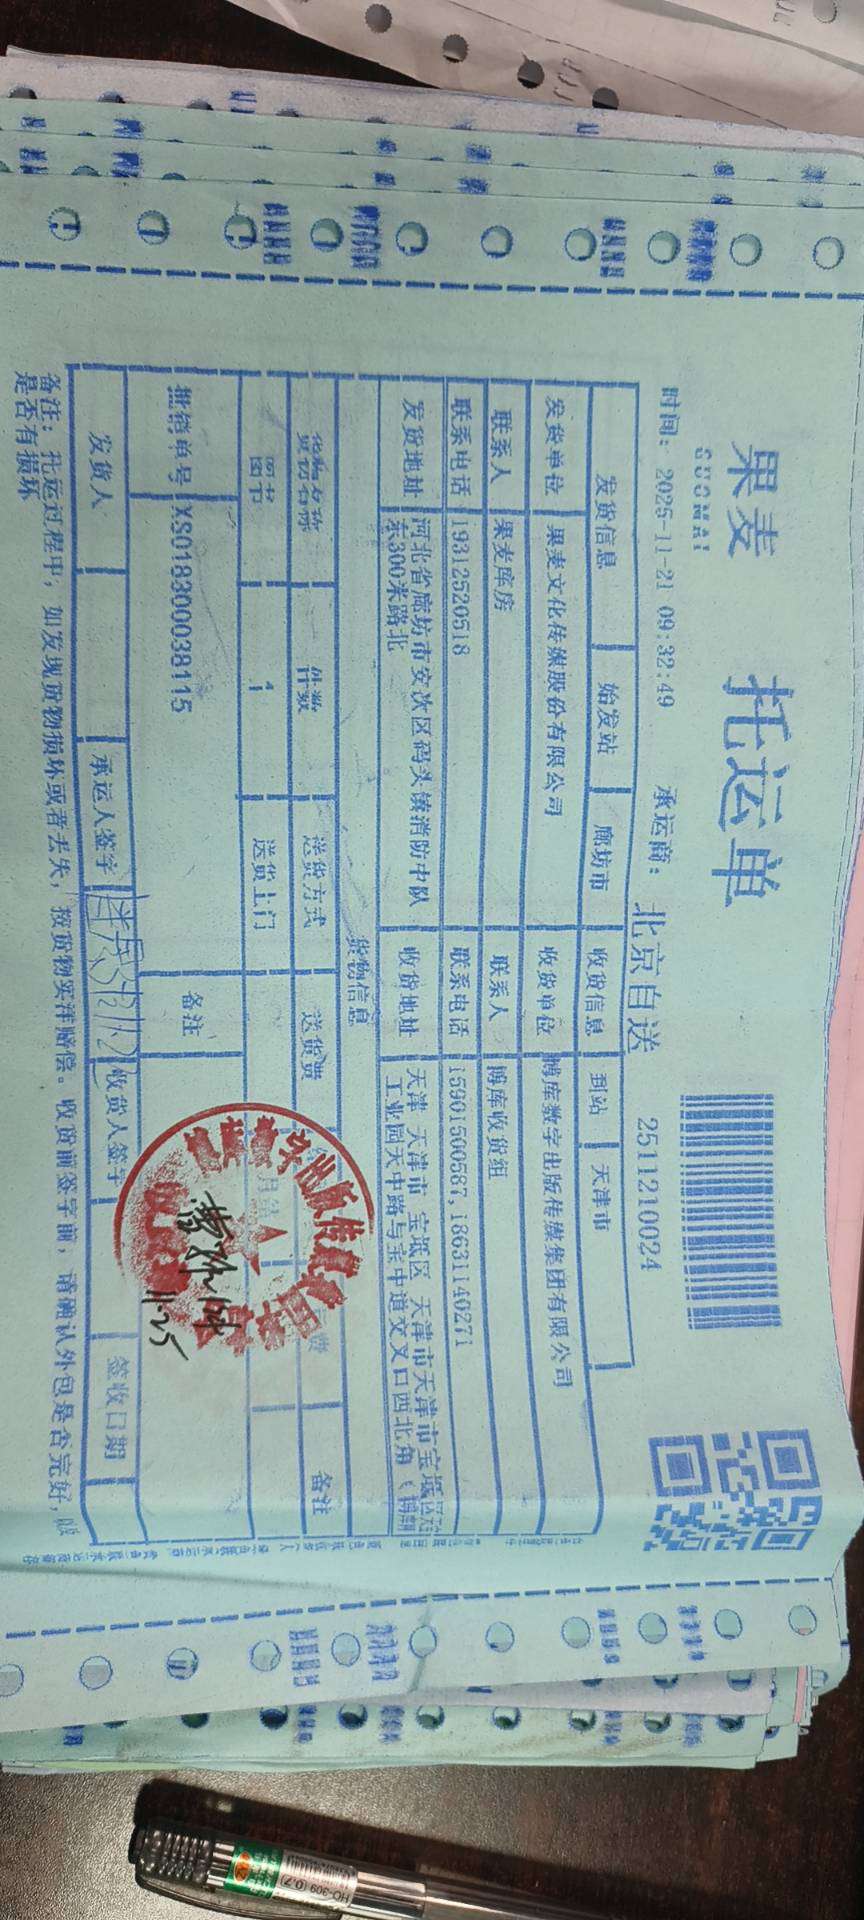 果麦
GUOMAI
托运单
时间: 2025-11-21 09:32:49 承运商: 北京自送 2511210024
发货信息 始发站 廊坊市 收货信息 到站 天津市
发货单位 果麦文化传媒股份有限公司 收货单位 博库数字出版传媒集团有限公司
联系人 果麦库房 联系人 博库收货组
联系电话 19312520518 联系电话 15901500587,18631140271
发货地址 河北省廊坊市安次区码头镇消防中队东300米路北 收货地址 天津 天津市 宝坻区 天津市天津市宝坻区
工业园天中路与宝中道交叉口西北角(
货物信息
货物名称 件数 送货方式 送货费 备注
图书 1 送货上门 月结
批销单号 XS018300038115 备注
发货人 承运人签字 收货人签字 签收日期
11.25
备注: 托运过程中, 如发现货物损坏或者丢失, 按货物实洋赔偿。收货前签字前, 请确认外包是否完好,
是否有损坏
HO-309 (0.7)